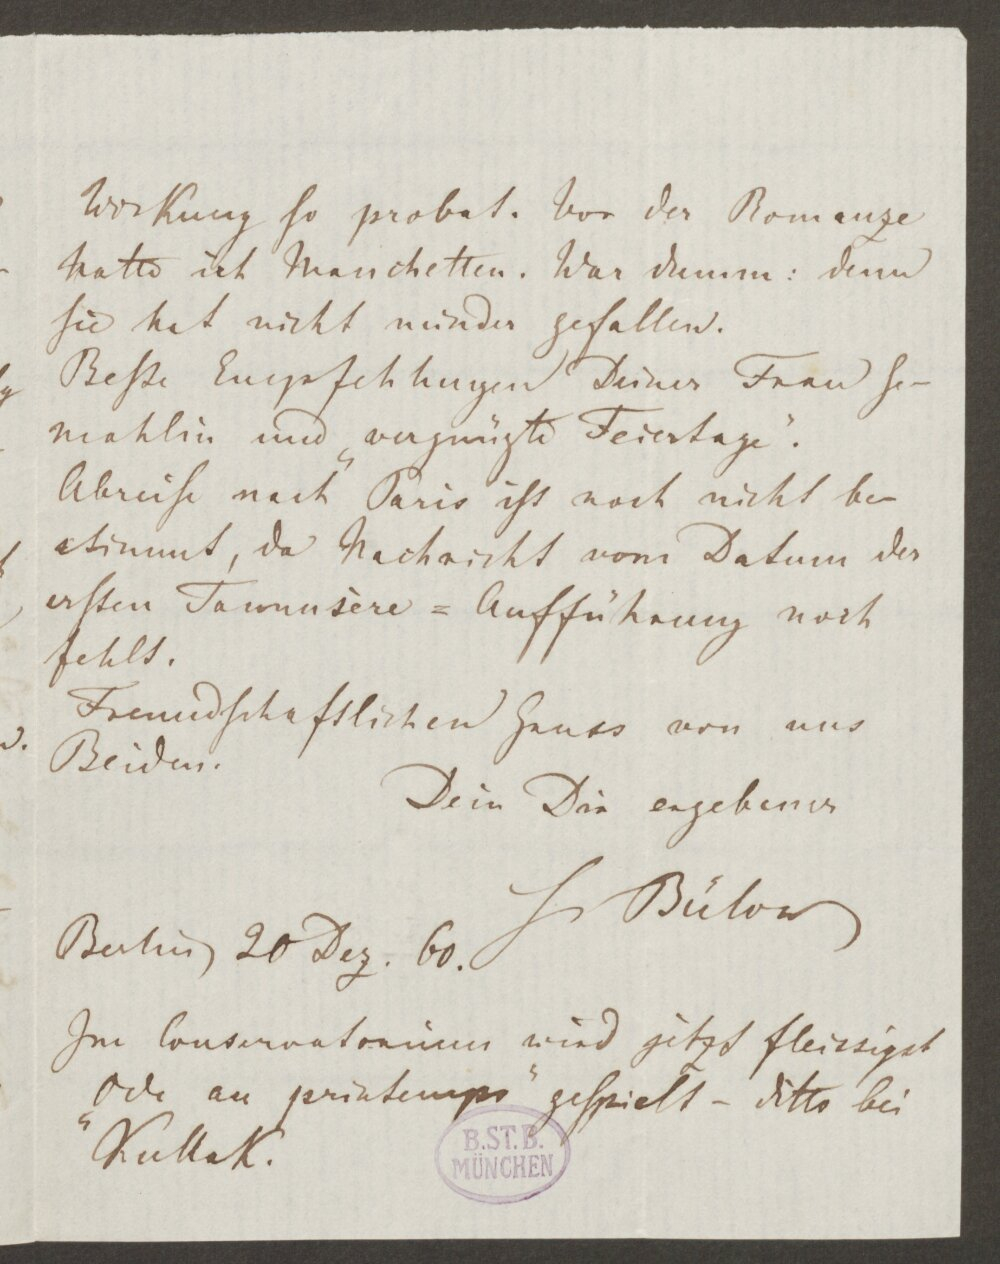 Wirkung so probat. Vor der Romanze
hatte ich Manschetten. War dumm: denn
sie hat nicht minder gefallen.
Beste Empfehlungen Deiner Frau Ge-
mahlin und „vergnügte Feiertage“.
Abreise nach Paris ist noch nicht be-
stimmt, da Nachricht vom Datum der
ersten Tannusère = Aufführung noch
fehlt.
Freundschaftlichen Gruss von uns
Beiden.
Dein Dir ergebener
H Bülow
Berlin 20 Dez. 60.
Im Conservatorium wird jetzt fleissigst
„Ode au printemps“ gespielt – ditto bei
Kullak.
B.ST.B.
MÜNCHEN